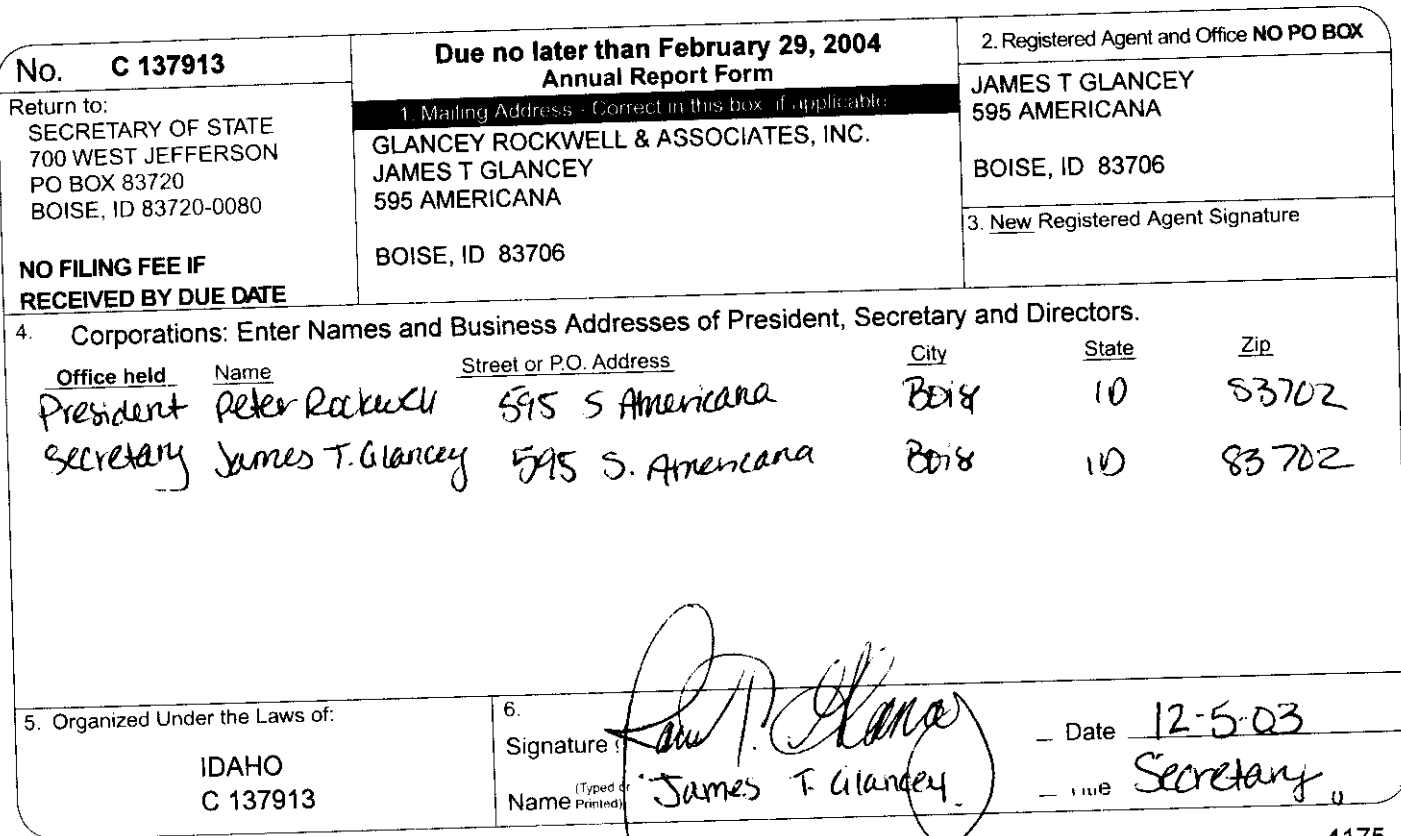 No. C 137913
Return to:
SECRETARY OF STATE
700 WEST JEFFERSON
PO BOX 83720
BOISE, ID 83720-0080
NO FILING FEE IF
RECEIVED BY DUE DATE
Due no later than February 29, 2004
Annual Report Form
1. Mailing Address - Correct in this box if applicable
GLANCEY ROCKWELL & ASSOCIATES, INC.
JAMES T GLANCEY
595 AMERICANA
BOISE, ID 83706
2. Registered Agent and Office NO PO BOX
JAMES T GLANCEY
595 AMERICANA
BOISE, ID 83706
3. New Registered Agent Signature
4. Corporations: Enter Names and Business Addresses of President, Secretary and Directors.
Office held Name Street or P.O. Address City State Zip
President Peter Rockwell 595 S Americana Boise ID 83702
Secretary James T. Glancey 595 S. Americana Boise ID 83702
5. Organized Under the Laws of:
IDAHO
C 137913
6.
Signature
Date 12-5-03
Name (Typed or Printed) James T. Glancey
Secretary